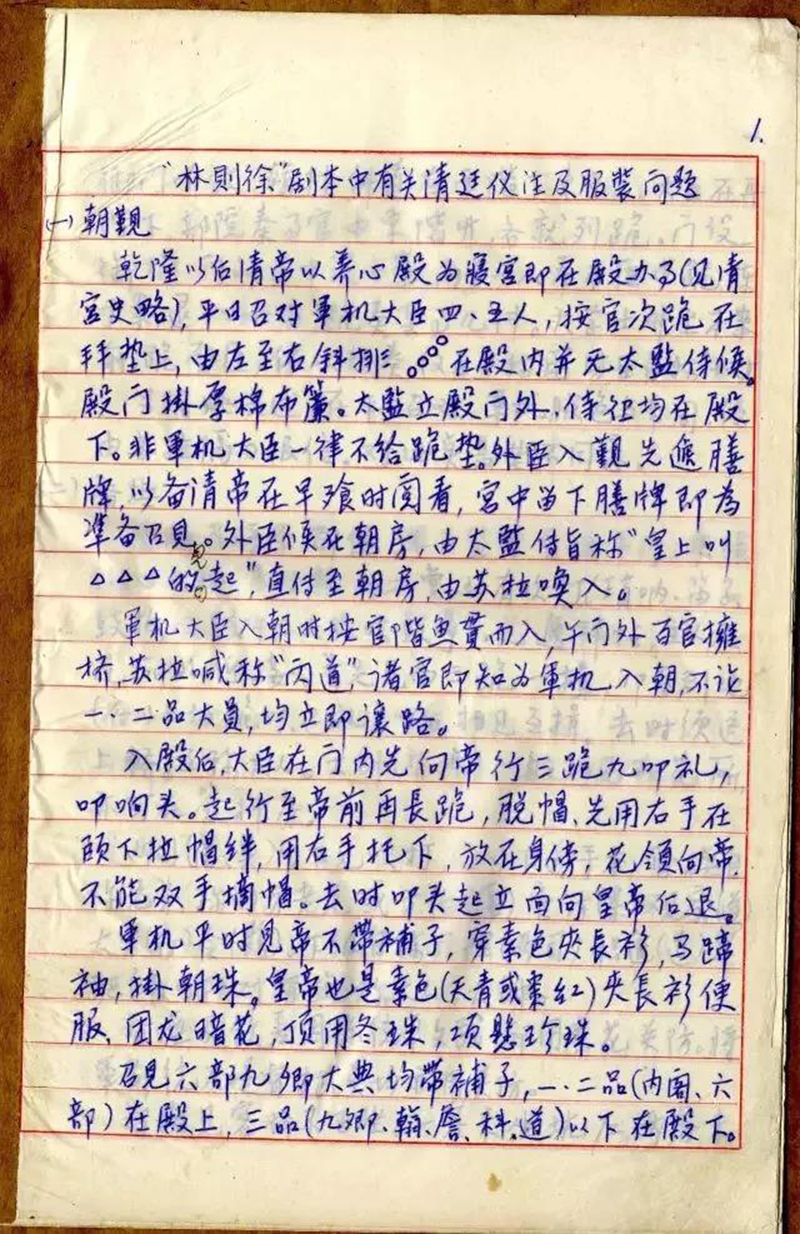 1.
"林則徐"剧本中有关清廷仪注及服装问题
(一)朝觐
乾隆以后清帝以养心殿为寝宫即在殿办事(见清
宫史略),平日召对軍机大臣四、五人,按官次跪在
拜垫上,由左至右斜排 在殿内并无太監侍候。
殿门掛厚棉布簾。太監立殿门外,侍衛均在殿
下。非軍机大臣一律不给跪垫。外臣入觐先遞膳
牌,以备清帝在早飧时阅看,宫中留下膳牌即为
準备召見。外臣候在朝房,由太監传旨称"皇上叫
△△△的起",直传至朝房,由苏拉唤入。
軍机大臣入朝时按官階魚貫而入,午门外百官擁
挤,苏拉喊称"丙道",诸官即知为軍机入朝,不论
一、二品大員,均立即讓路。
入殿后,大臣在门内先向帝行三跪九叩礼,
叩响头。起行至帝前再長跪,脱帽、先用右手在
颐下拉帽绊,用右手托下,放在身傍,花翎向帝,
不能双手摘帽。去时叩头起立面向皇帝后退。
軍机平时見帝不带補子,穿素色夾長衫,马蹄
袖,掛朝珠。皇帝也是素色(天青或棗红)夾長衫便
服、团龙暗花,顶用冬珠,项懸珍珠。
召見六部九卿大典均带補子,一、二品(内阁、六
部)在殿上,三品(九卿、翰、詹、科、道)以下在殿下。